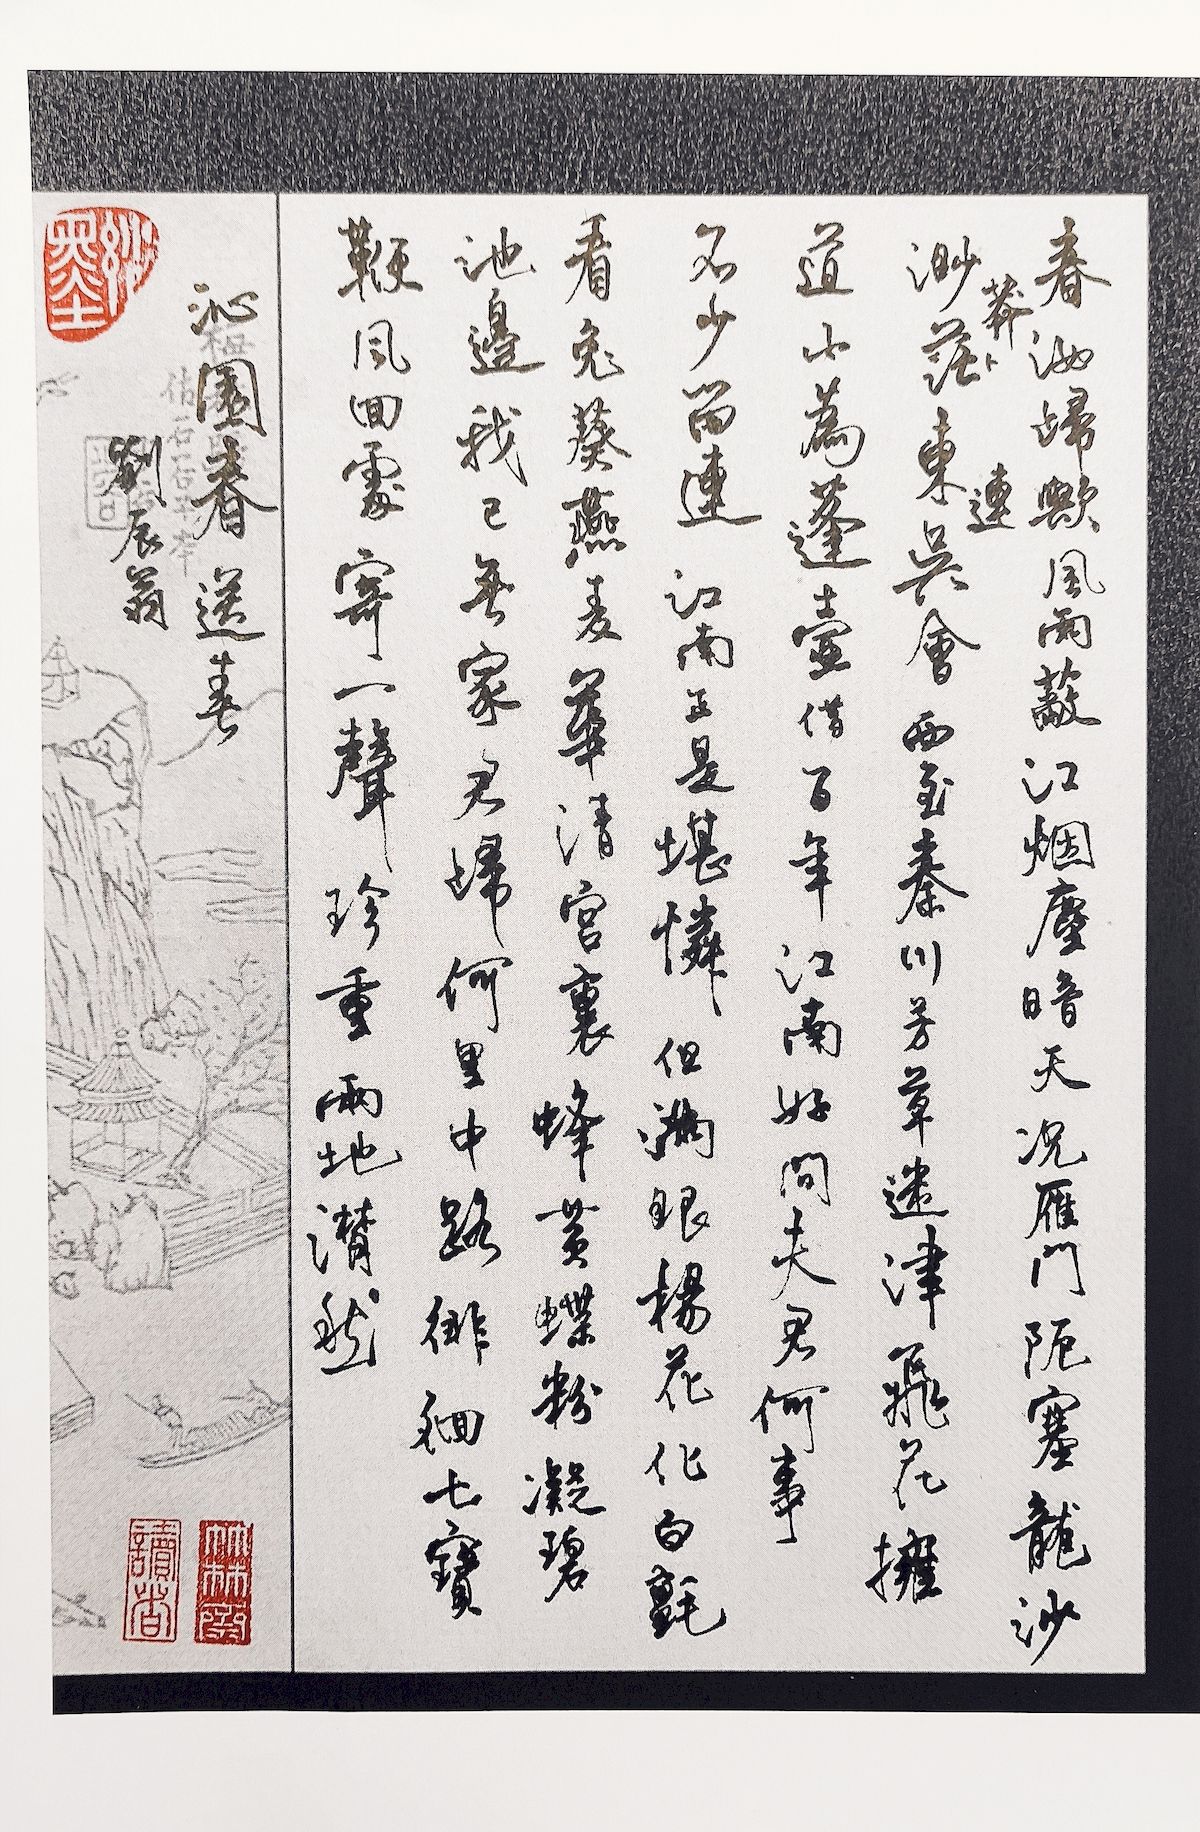 春汝歸歟風雨蔽江烟塵暗天況雁門阨塞龍沙
莽
連
渺茫東吳會西至秦川芳草迷津飛花擁
道小為蓬壺借百年江南好問夫君何事
不少留連江南正是堪憐但滿眼楊花化白氈
看兔葵燕麦華清宮裏蜂黄蝶粉凝碧
池邊我已無家君歸何里中路徘徊七寶
鞭風回處寄一聲珍重兩地潸然
沁園春 送春
劉辰翁